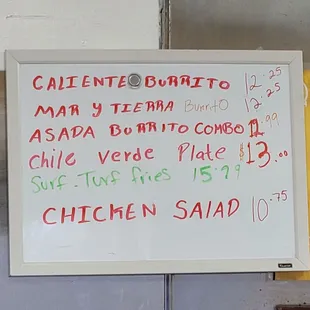 CALIENTE BURRITO 12.25
MAR y TIERRA Burrito 12.25
ASADA BURRITO COMBO 12.99
Chile Verde Plate $13.00
Surf.Turf fries 15.99
CHICKEN SALAD 10.75